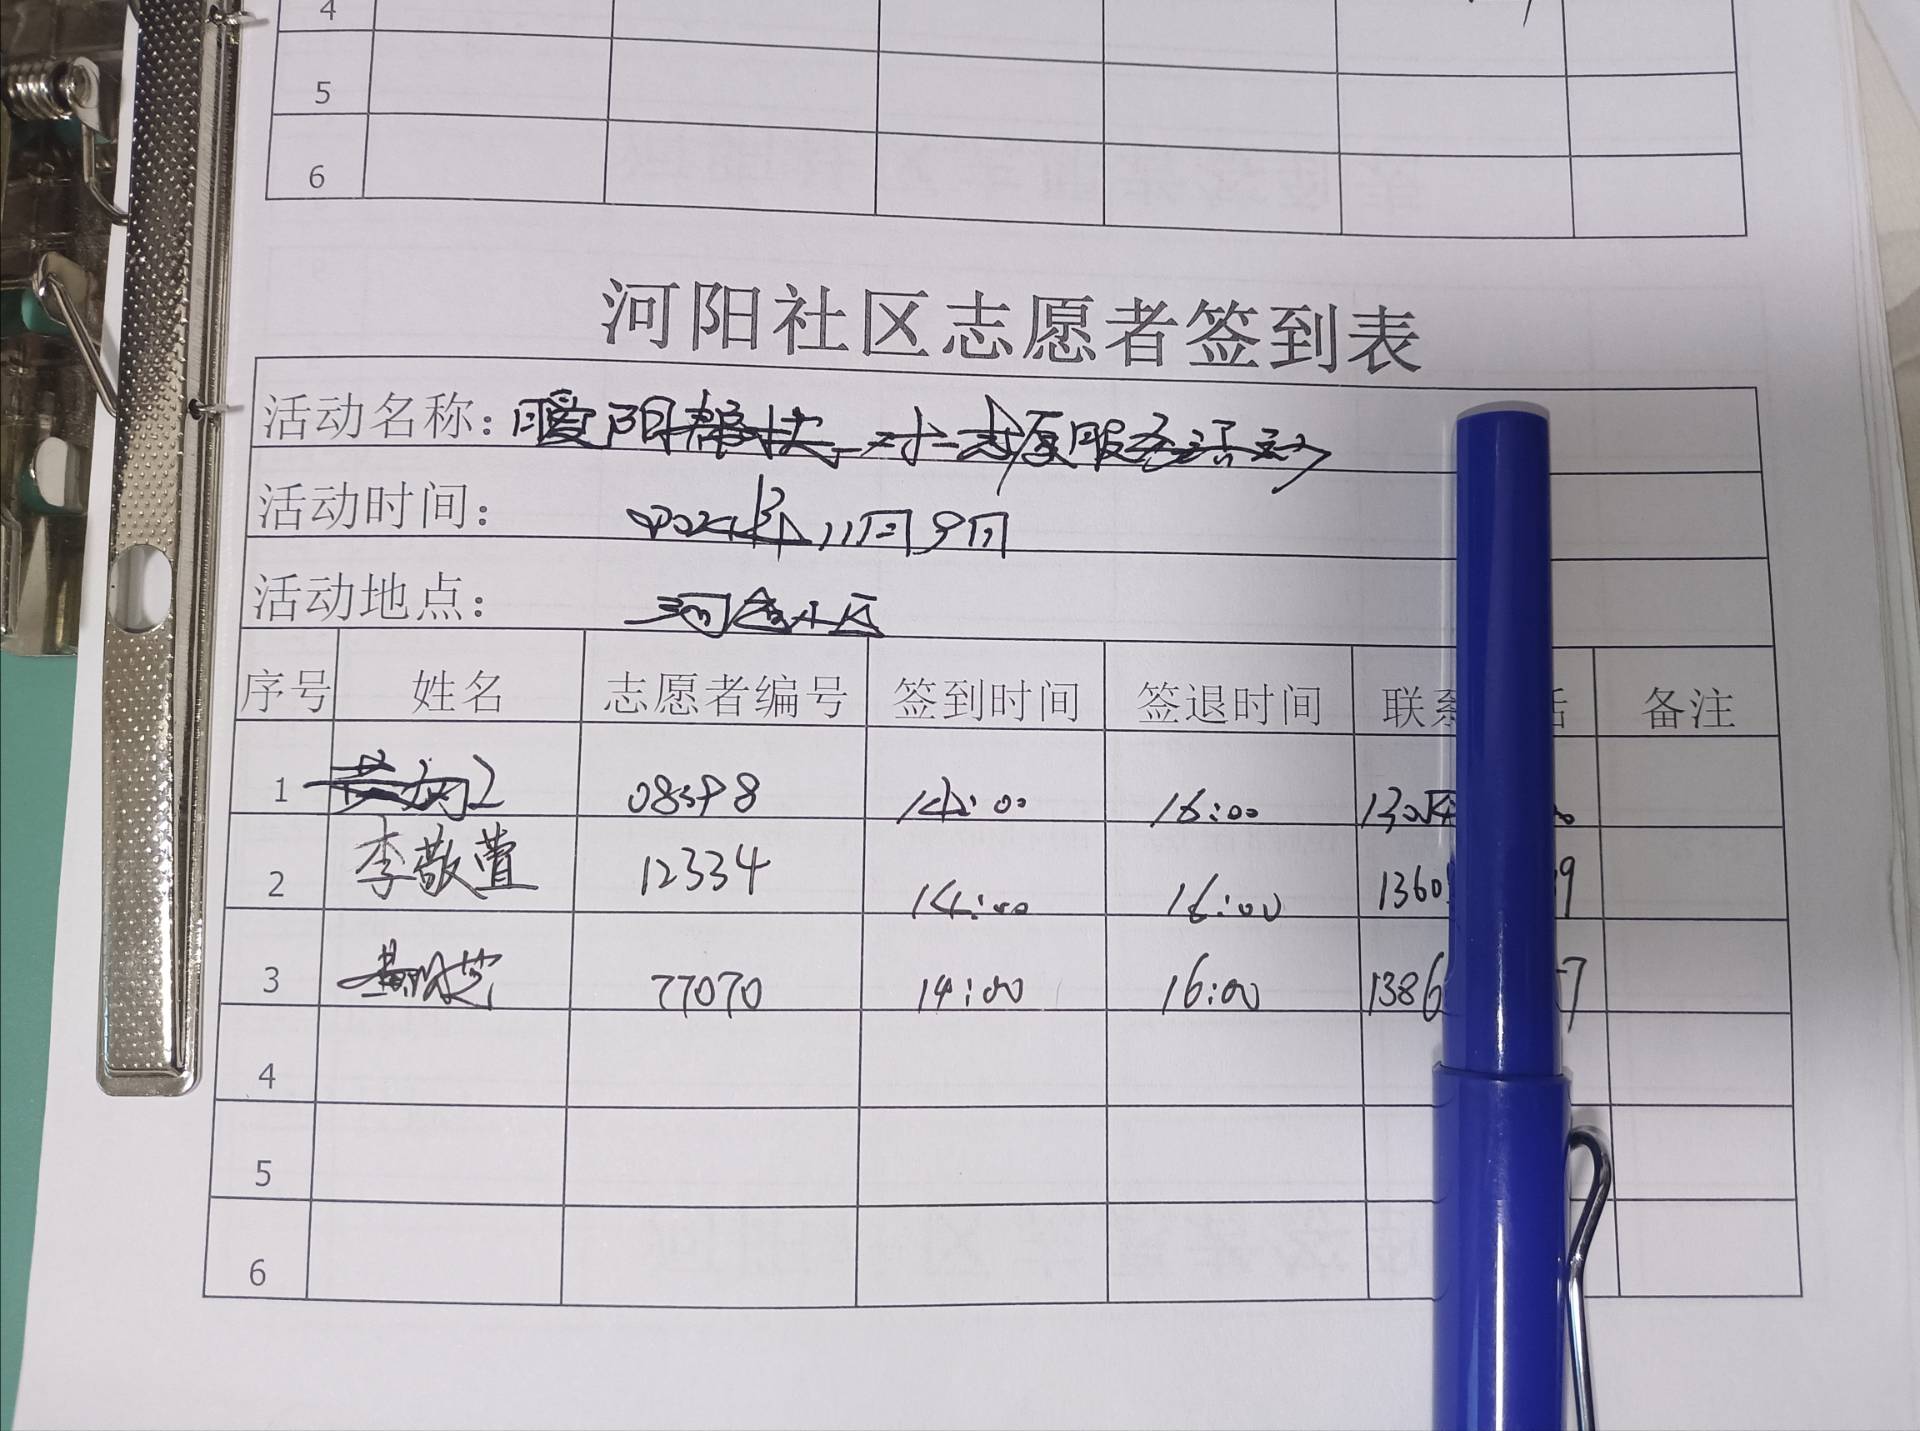 4
5
6
河阳社区志愿者签到表
活动名称：暖阳帮扶一对一志愿服务活动
活动时间： 2024年11月9日
活动地点： 河畬小区
序号 姓名 志愿者编号 签到时间 签退时间 联系 话 备注
1 14:00 16:00 130
2 李敬萱 12334 14:00 16:00 1360 9
3 77070 14:00 16:00 1386 7
4
5
6